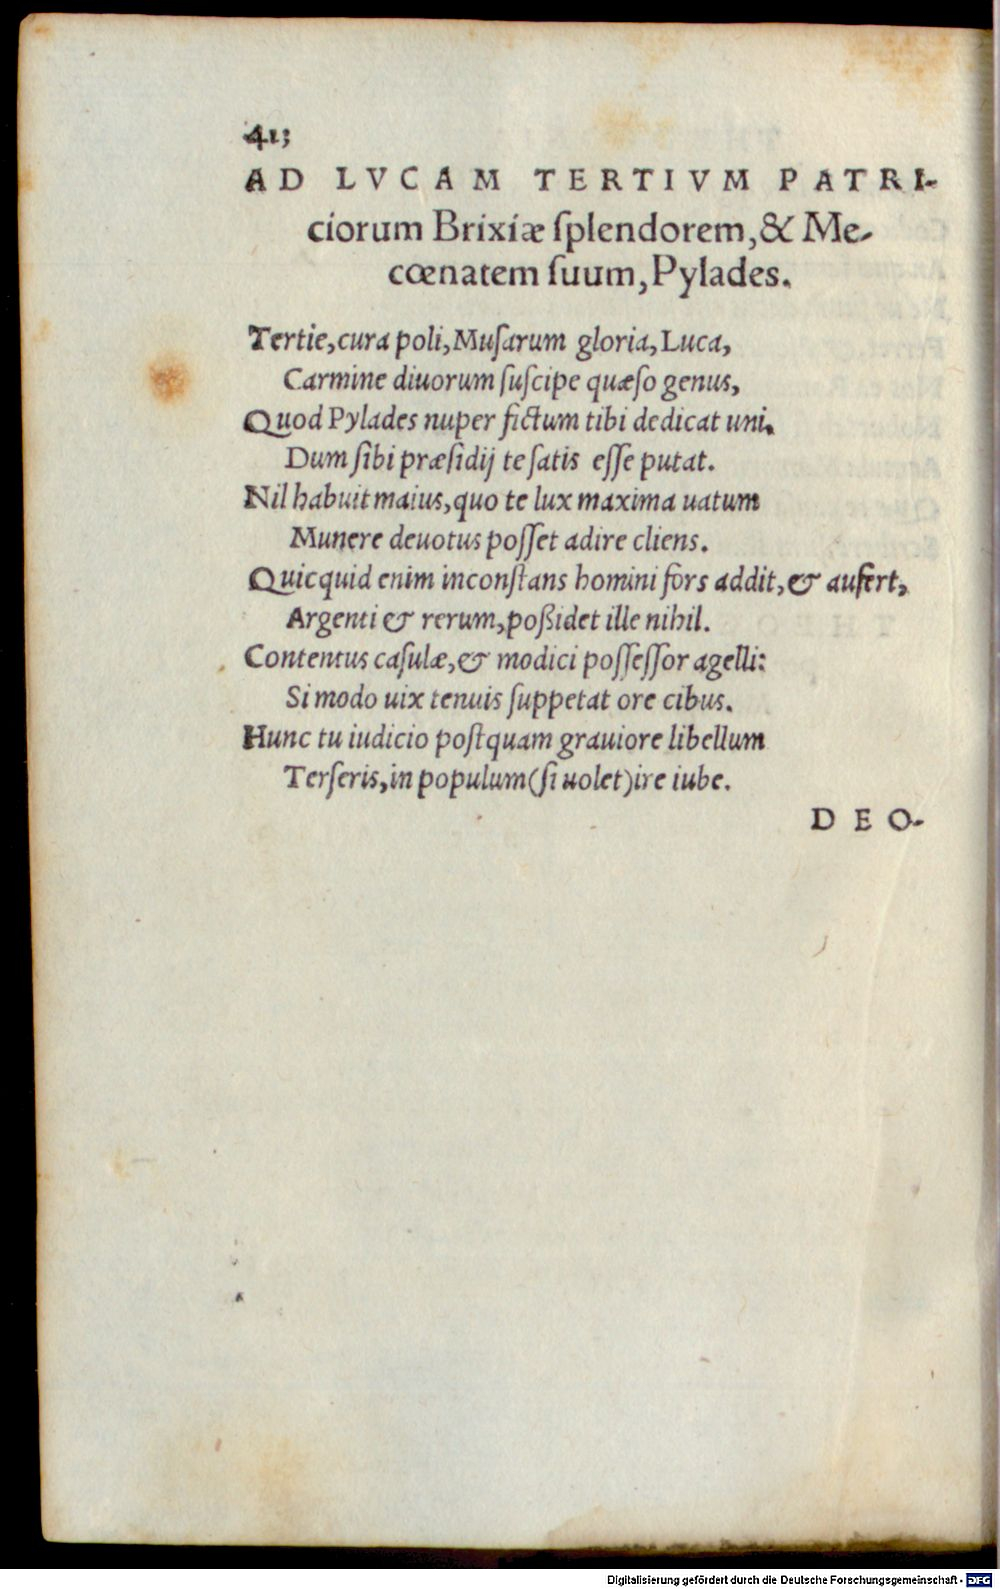 413
AD LVCAM TERTIVM PATRI-
ciorum Brixiæ ſplendorem,& Me-
cœnatem ſuum, Pylades.
Tertie, cura poli, Muſarum gloria, Luca,
Carmine diuorum ſuſcipe quæſo genus,
Quod Pylades nuper fictum tibi dedicat uni.
Dum ſibi præſidij te ſatis eſſe putat.
Nil habuit maius, quo te lux maxima uatum
Munere deuotus poſſet adire cliens.
Quicquid enim inconſtans homini fors addit, & aufert,
Argenti & rerum, poßidet ille nihil.
Contentus caſulæ, & modici poſſeſſor agelli:
Si modo uix tenuis ſuppetat ore cibus.
Hunc tu iudicio poſtquam grauiore libellum
Terſeris, in populum (ſi uolet) ire iube.
DEO-
Digitalisierung gefördert durch die Deutsche Forschungsgemeinschaft - DFG